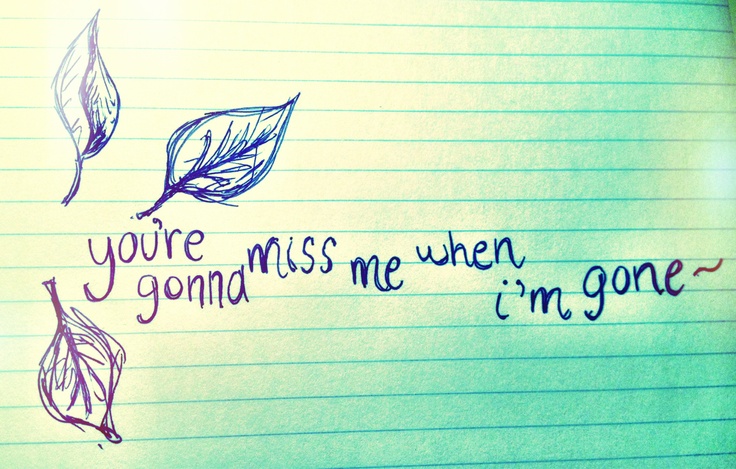 you're gonna miss me when i'm gone~